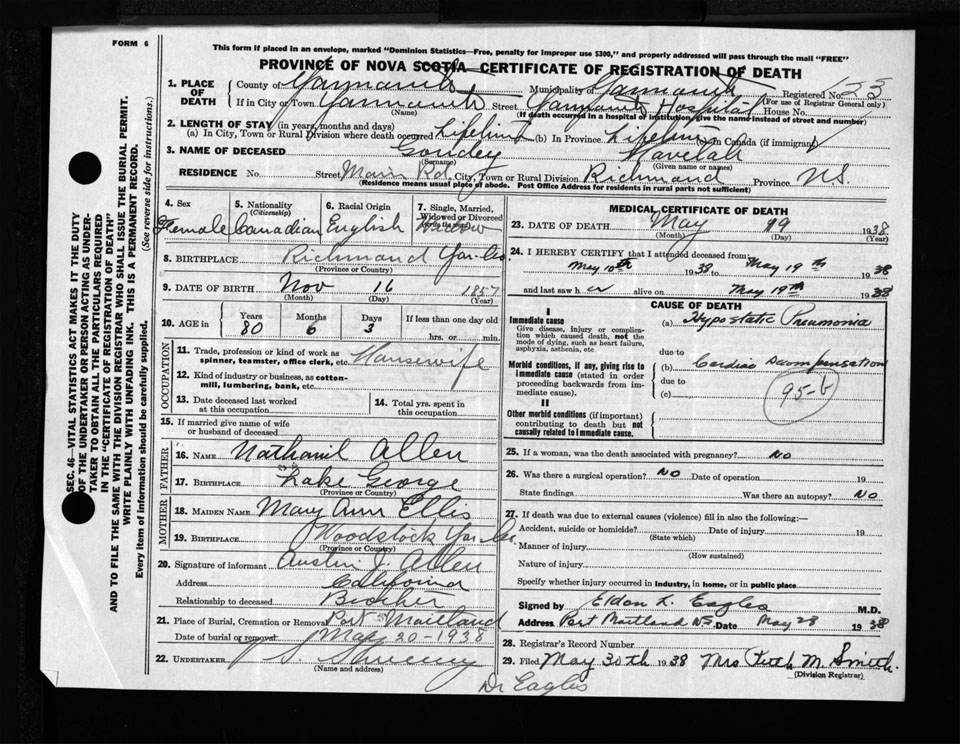 FORM 6
This form if placed in an envelope, marked "Dominion Statistics—Free, penalty for improper use $300," and properly addressed will pass through the mail "FREE"
PROVINCE OF NOVA SCOTIA—CERTIFICATE OF REGISTRATION OF DEATH
1. PLACE OF DEATH County of Yarmouth Municipality of Yarmouth Registered No. 125
(For use of Registrar General only)
If in City or Town Yarmouth Street Yarmouth Hospital House No.
(Name) (If death occurred in a hospital or institution, give the name instead of street and number)
2. LENGTH OF STAY (in years, months and days)
(a) In City, Town or Rural Division where death occurred Lifetime (b) In Province Lifetime (c) In Canada (if immigrant)
3. NAME OF DECEASED Goudey
(Surname) (Given name or names)
RESIDENCE No. Street Main Rd. City, Town or Rural Division Richmond Province N.S.
(Residence means usual place of abode. Post Office Address for residents in rural parts not sufficient.)
4. Sex Female
5. Nationality (Citizenship) Canadian
6. Racial Origin English
7. Single, Married, Widowed or Divorced Widow
8. BIRTHPLACE Richmond Yar. Co.
(Province or Country)
9. DATE OF BIRTH Nov 16 1857
(Month) (Day) (Year)
10. AGE in Years Months Days If less than one day old
80 6 3 hrs. or min.
OCCUPATION
11. Trade, profession or kind of work as spinner, teamster, office clerk, etc. Housewife
12. Kind of industry or business, as cotton-mill, lumbering, bank, etc.
13. Date deceased last worked at this occupation
14. Total yrs. spent in this occupation
15. If married give name of wife or husband of deceased
FATHER
16. NAME Nathaniel Allen
17. BIRTHPLACE Lake George
(Province or Country)
MOTHER
18. MAIDEN NAME Mary Ann Ellis
19. BIRTHPLACE Woodstock Yar. Co.
(Province or Country)
20. Signature of informant Austin J. Allen
Address California
Relationship to deceased Brother
21. Place of Burial, Cremation or Removal Port Maitland
Date of burial or removal May 20-1938
22. UNDERTAKER Sweeney
(Name and address)
Dr Eagles
MEDICAL CERTIFICATE OF DEATH
23. DATE OF DEATH May 19 1938
(Month) (Day) (Year)
24. I HEREBY CERTIFY that I attended deceased from
May 10th 1938 to May 19th 1938
and last saw her alive on May 19th 1938
CAUSE OF DEATH
I
Immediate cause
Give disease, injury or complication which caused death, not the mode of dying, such as heart failure, asphyxia, asthenia, etc
Morbid conditions, if any, giving rise to immediate cause (stated in order proceeding backwards from immediate cause).
II
Other morbid conditions (if important) contributing to death but not causally related to immediate cause.
(a) Hypostatic Pneumonia
due to
(b) Cardiac Decompensation
due to
(c)
95-b
25. If a woman, was the death associated with pregnancy? NO
26. Was there a surgical operation? NO Date of operation 19
State findings Was there an autopsy? NO
27. If death was due to external causes (violence) fill in also the following:—
Accident, suicide or homicide? Date of injury 19
(State which)
Manner of injury
(How sustained)
Nature of injury
Specify whether injury occurred in industry, in home, or in public place
Signed by Eldon L. Eagles M.D.
Address Port Maitland NS Date May 28 1938
28. Registrar's Record Number
29. Filed May 30th 1938 Mrs Ruth M. Smith.
(Division Registrar)
SEC. 46—VITAL STATISTICS ACT MAKES IT THE DUTY
OF THE UNDERTAKER OR PERSON ACTING AS UNDER-
TAKER TO OBTAIN ALL THE PARTICULARS REQUIRED
IN THE "CERTIFICATE OF REGISTRATION OF DEATH"
AND TO FILE THE SAME WITH THE DIVISION REGISTRAR WHO SHALL ISSUE THE BURIAL PERMIT.
WRITE PLAINLY WITH UNFADING INK. THIS IS A PERMANENT RECORD.
Every item of information should be carefully supplied. (See reverse side for instructions.)